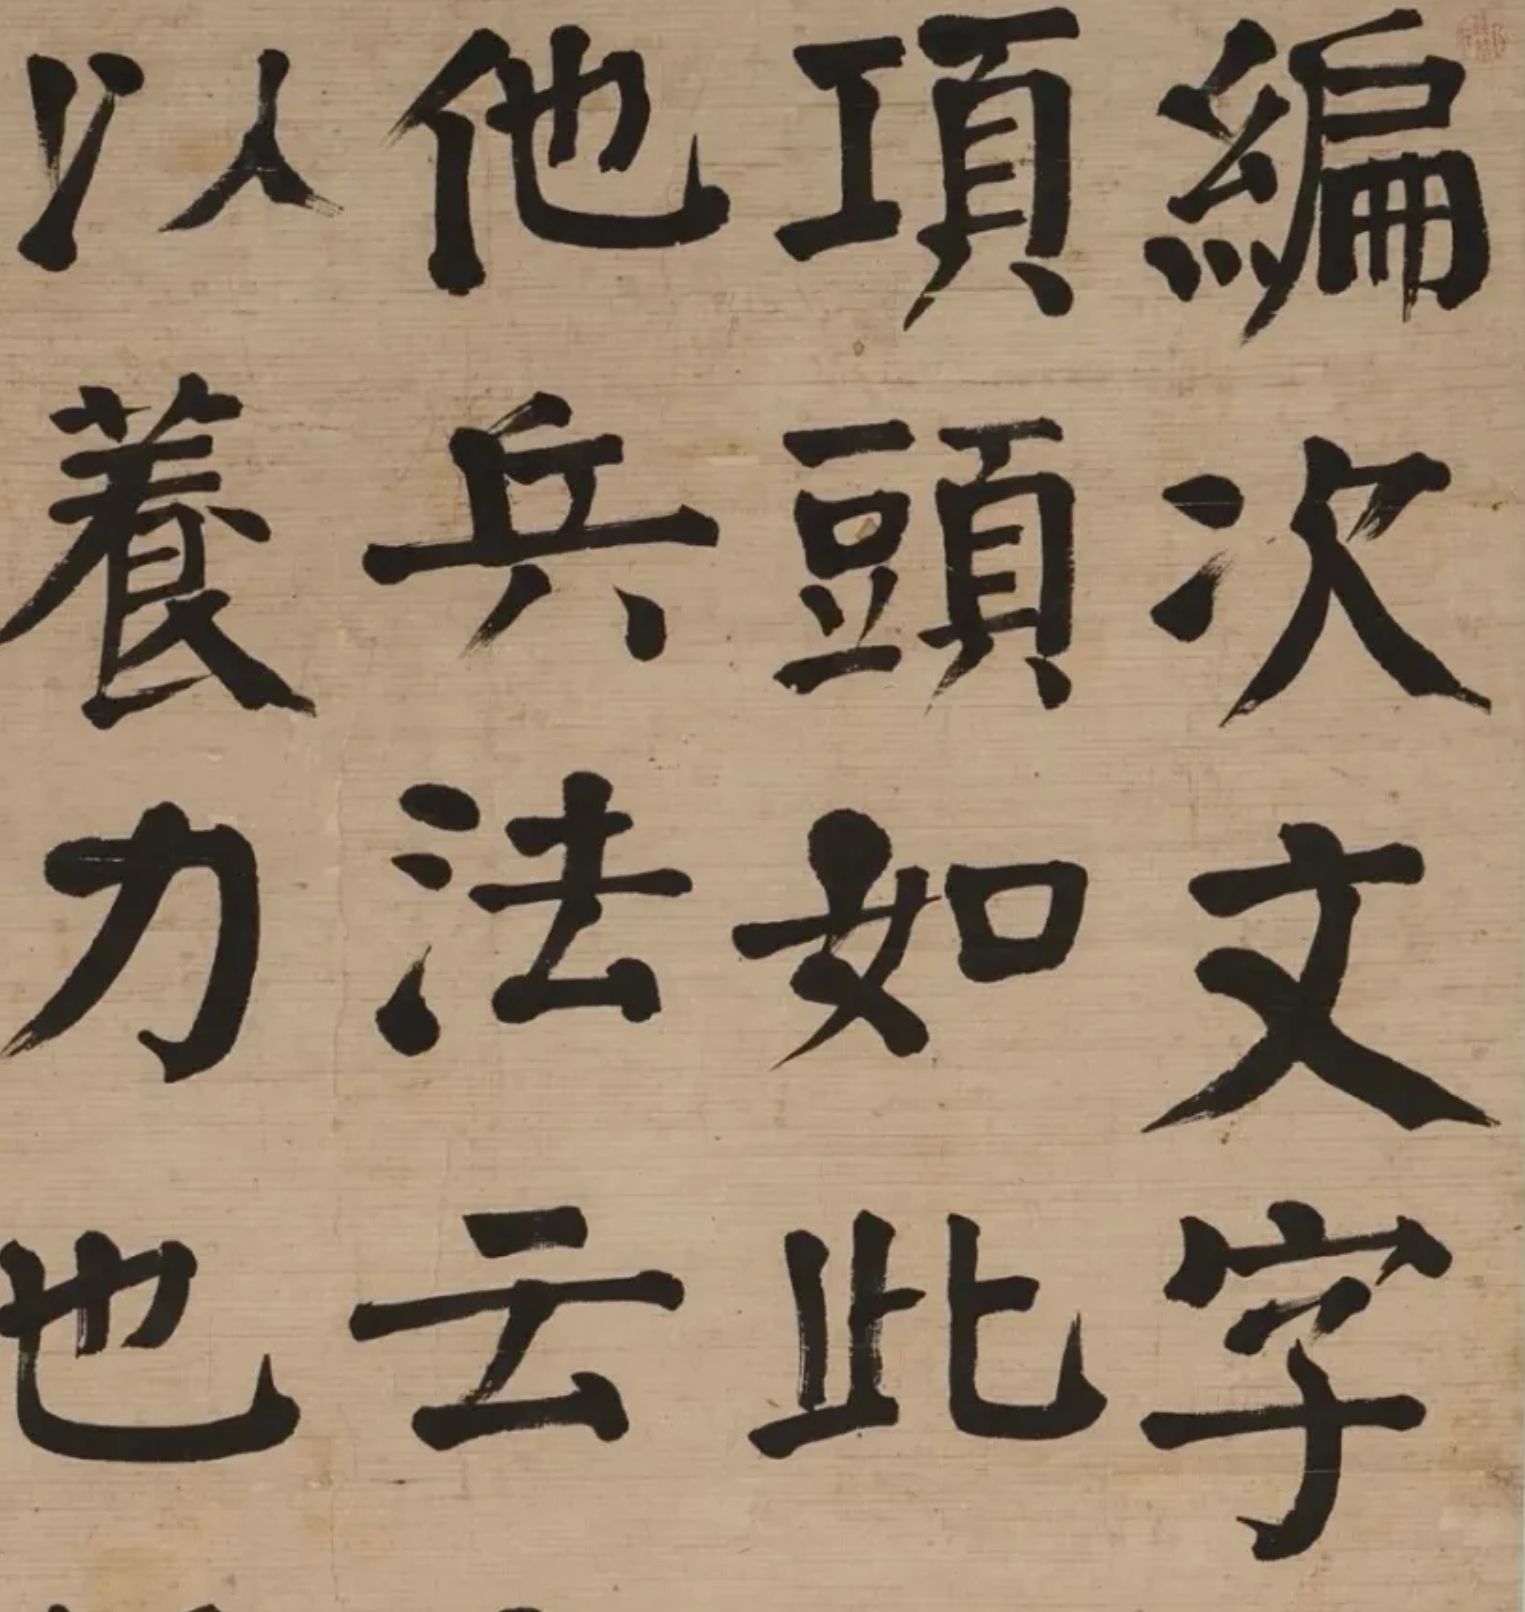 編次文字
項頭如此
他兵法云
以養力也